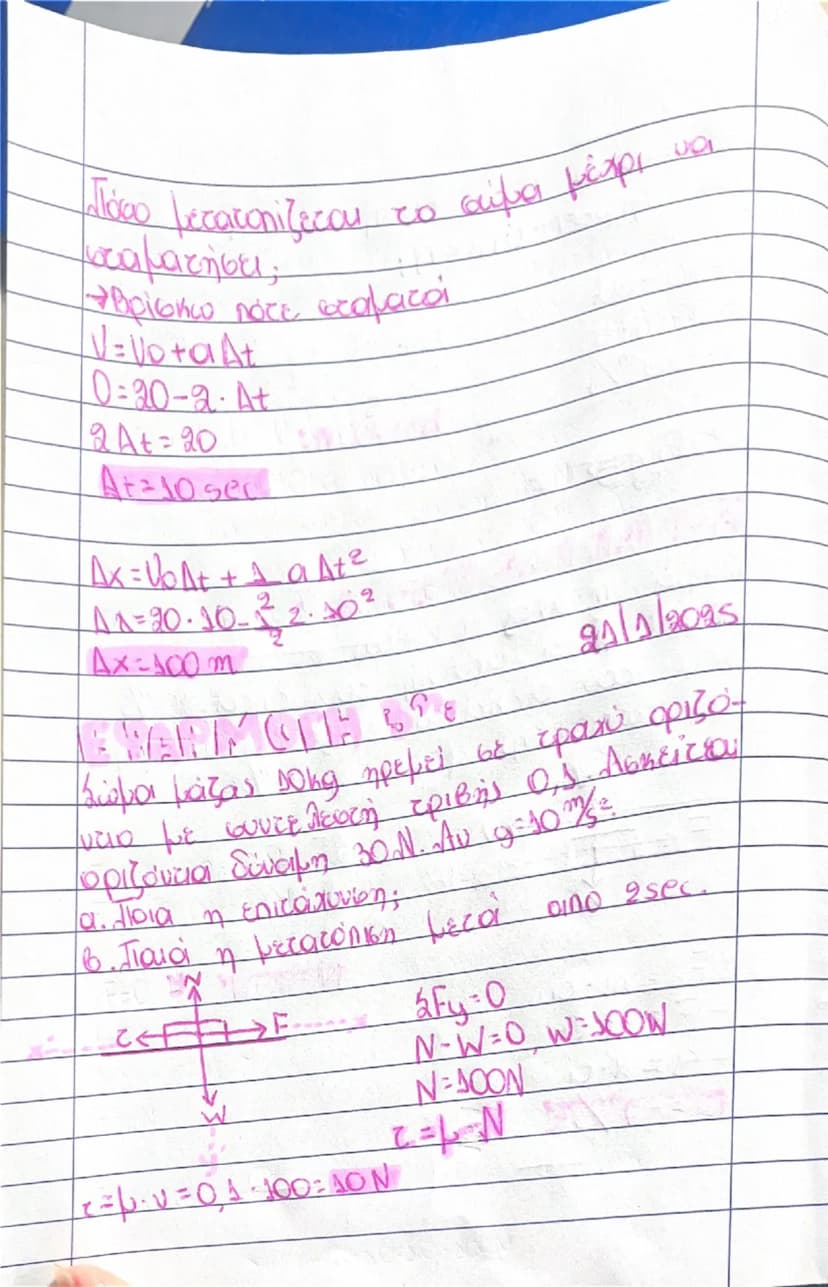 Πόσο μετατοπίζεται το σώμα μέχρι να
σταματήσει;
→Βρίσκω πότε σταματά
V=V0+aΔt
0=20-2·Δt
2Δt=20
Δt=10sec
Δx=V0Δt+1/2 aΔt²
Δx=20·10-1/2 2·10²
Δx=100m
21/1/2025
ΕΦΑΡΜΟΓΗ 3της
Σώμα μάζας 10kg ηρεμεί σε τραχύ οριζό-
ντιο με συντελεστή τριβής 0,1. Ασκείται
οριζόντια δύναμη 30N. Αν g=10m/s²:
α. Ποια η επιτάχυνση;
β. Ποιά η μετατόπιση μετά από 2sec.
N
τ F
W
ΣFy=0
N-W=0, W=100N
N=100N
τ=μ·N
τ=μ·ν=0,1·100=10N